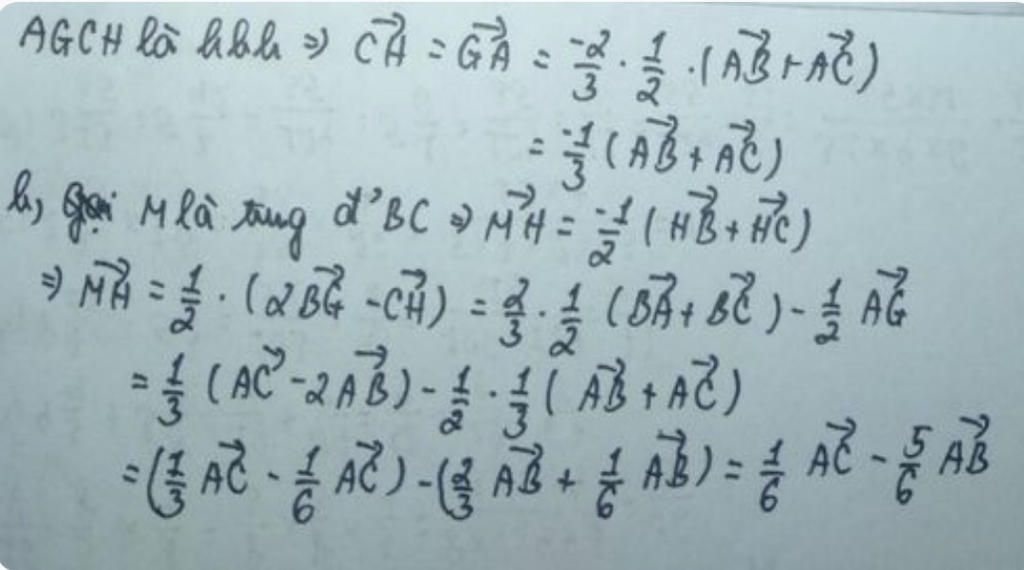 AGCH là hbh ⇒ $\overrightarrow{CH} = \overrightarrow{GA} = \frac{-2}{3} \cdot \frac{1}{2} \cdot (\overrightarrow{AB} + \overrightarrow{AC})$
$= \frac{-1}{3} (\overrightarrow{AB} + \overrightarrow{AC})$
b, Gọi M là trung đ' BC ⇒ $\overrightarrow{MH} = \frac{-1}{2} (\overrightarrow{HB} + \overrightarrow{HC})$
⇒ $\overrightarrow{MH} = \frac{1}{2} \cdot (2\overrightarrow{BG} - \overrightarrow{CH}) = \frac{2}{3} \cdot \frac{1}{2} (\overrightarrow{BA} + \overrightarrow{BC}) - \frac{1}{2} \overrightarrow{AG}$
$= \frac{1}{3} (\overrightarrow{AC} - 2\overrightarrow{AB}) - \frac{1}{2} \cdot \frac{1}{3} (\overrightarrow{AB} + \overrightarrow{AC})$
$= (\frac{1}{3} \overrightarrow{AC} - \frac{1}{6} \overrightarrow{AC}) - (\frac{2}{3} \overrightarrow{AB} + \frac{1}{6} \overrightarrow{AB}) = \frac{1}{6} \overrightarrow{AC} - \frac{5}{6} \overrightarrow{AB}$